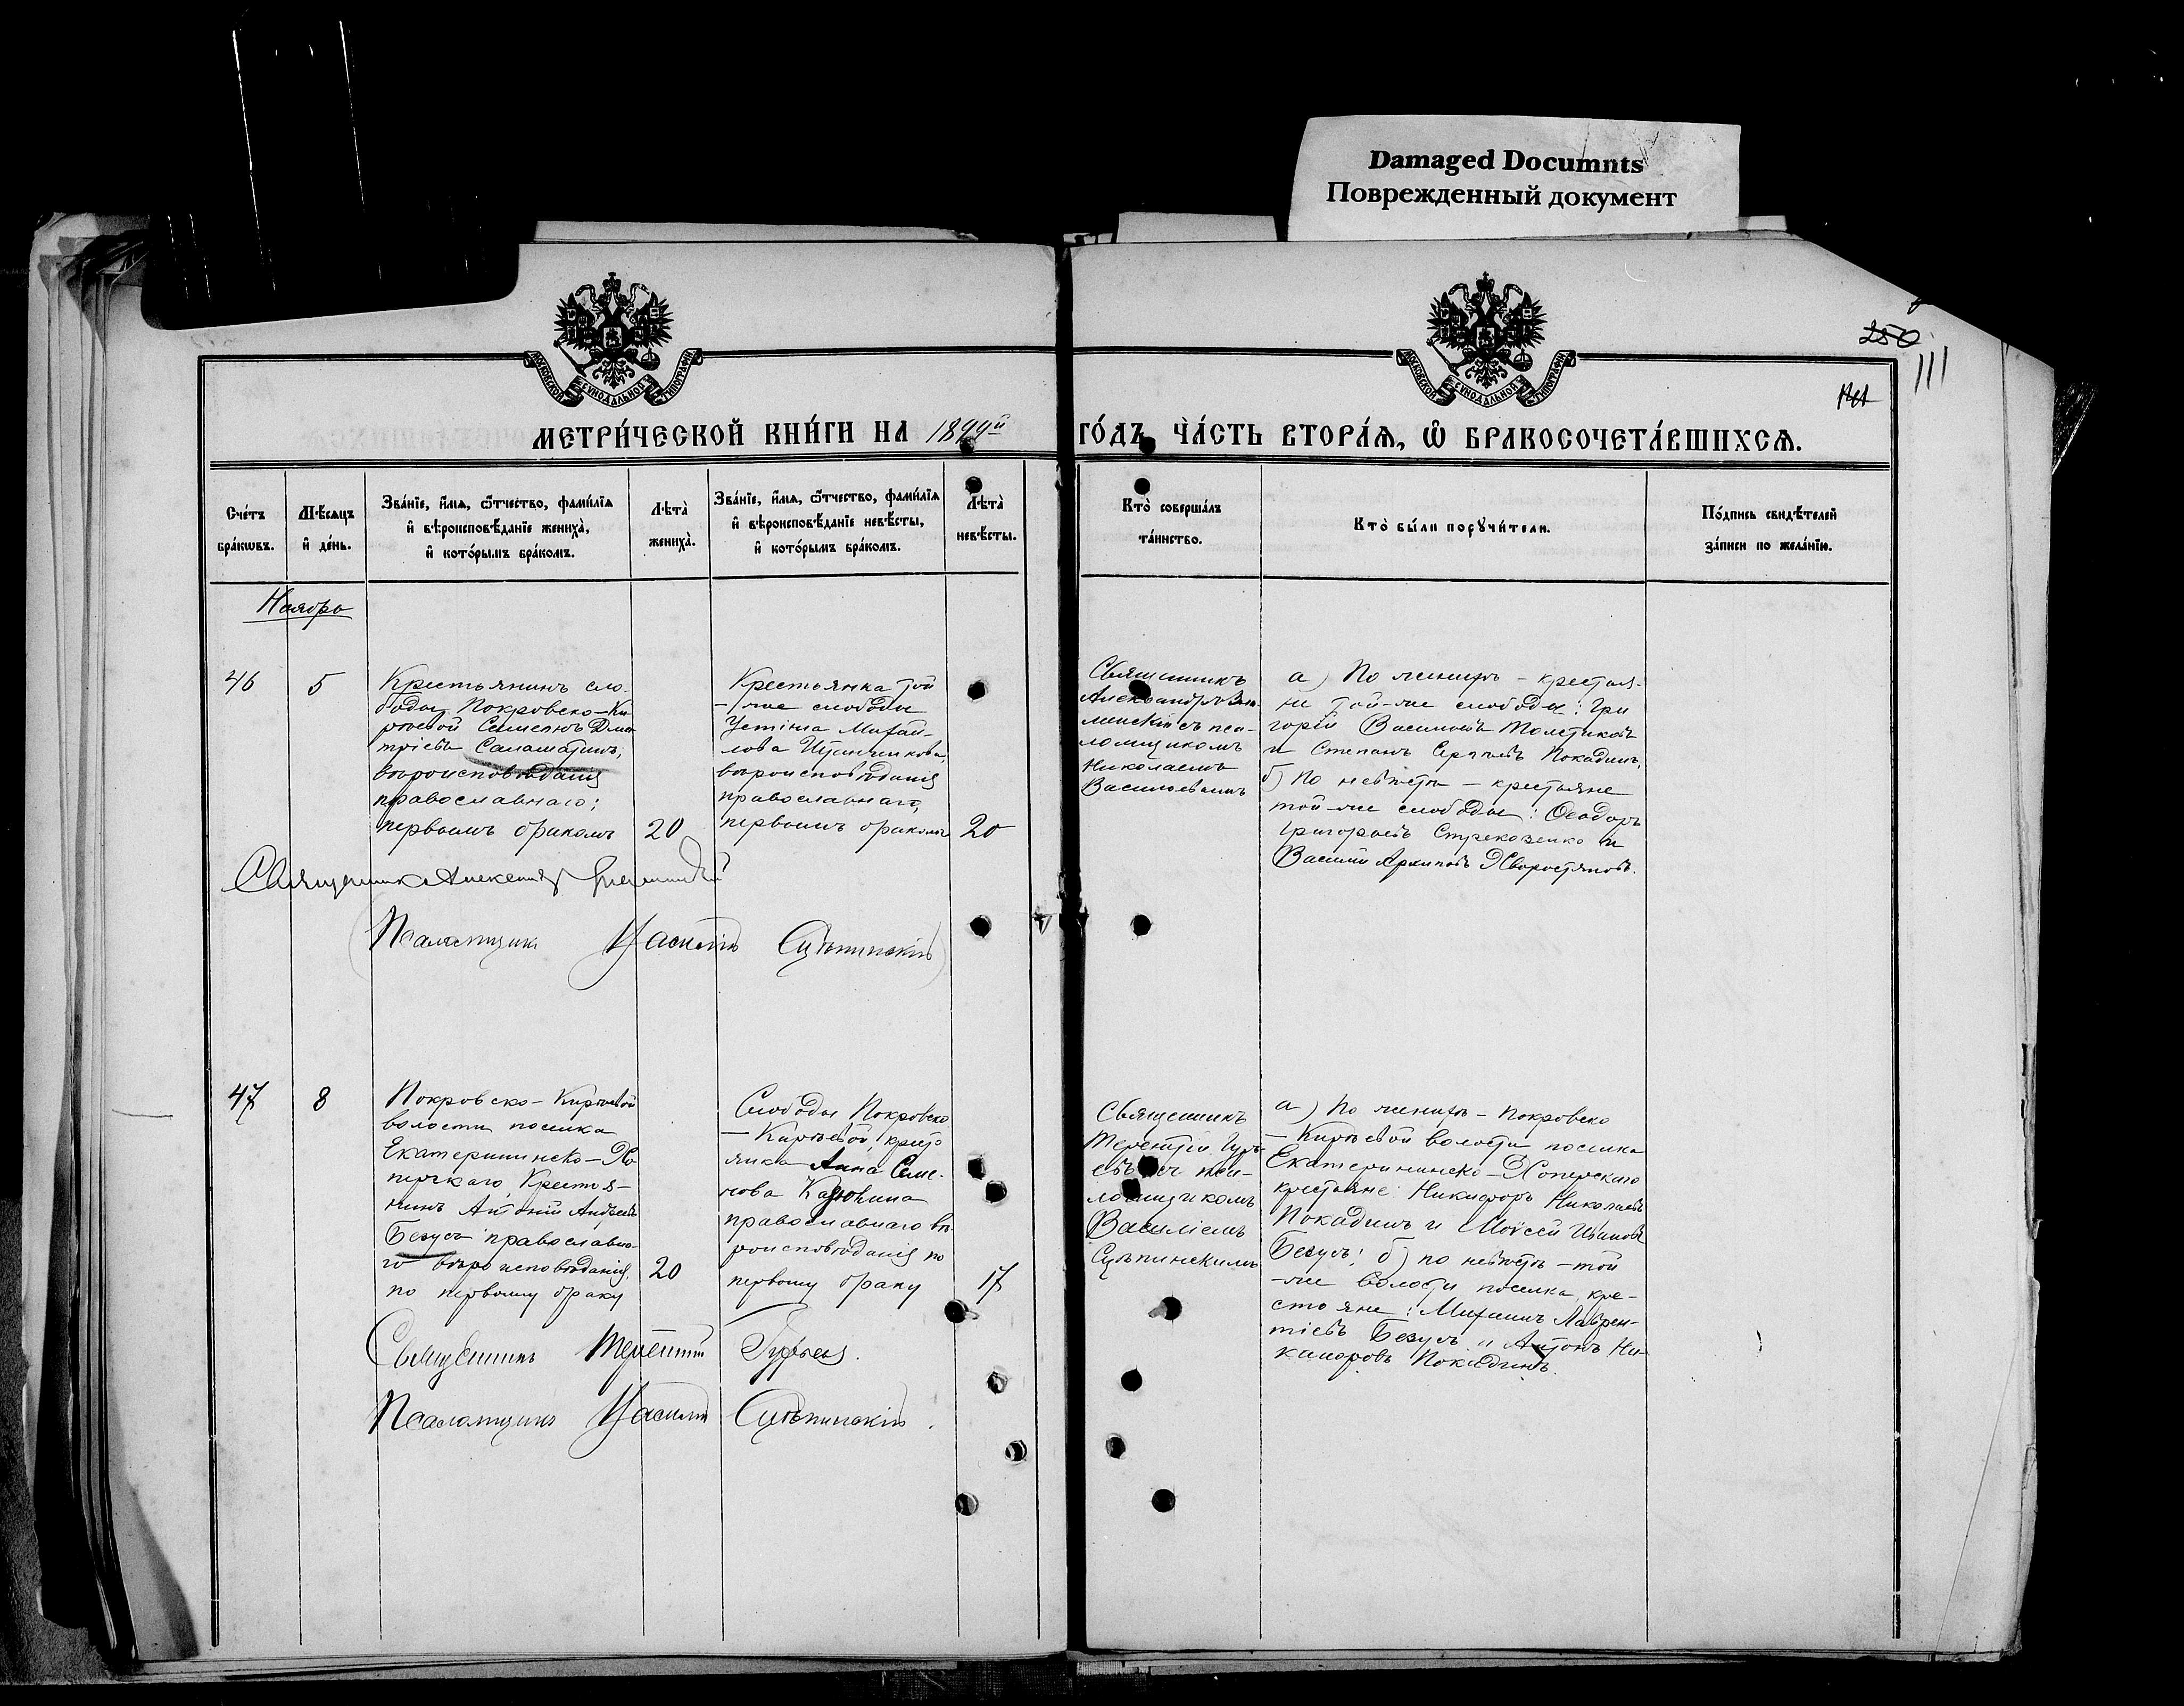 Damaged Documnts
Поврежденный документ
МОСКОВСКОЙ СѴНОДАЛЬНОЙ ТИПОГРАФІИ
МОСКОВСКОЙ СѴНОДАЛЬНОЙ ТИПОГРАФІИ
250
111
МЕТРИ́ЧЕСКОЙ КНИ́ГИ НА 1899й ГО́ДЪ, ЧА́СТЬ ВТОРА́Ѧ, Ѡ҆ БРАКОСОЧЕТА́ВШИХСѦ.
Сче́тъ
бра́кѡвъ.
Мѣ́сѧцъ
и҆ де́нь.
Зва́нїе, и҆́мѧ, ѻ҆́тчество, фами́лїѧ
и҆ вѣроисповѣ́данїе жениха̀,
и҆ кото́рымъ бра́комъ.
Лѣта̀
жениха̀.
Зва́нїе, и҆́мѧ, ѻ҆́тчество, фами́лїѧ
и҆ вѣроисповѣ́данїе невѣ́сты,
и҆ кото́рымъ бра́комъ.
Лѣта̀
невѣ́сты.
Кто̀ соверша́лъ
та́инство.
Кто̀ бы́ли порꙋчи́тели.
По́дпись свидѣ́телей
за́писи по жела́нїю.
Ноябрь
46
5
Крестьянинъ сло-
боды Покровско-Ки-
рѣевой Семенъ Дми-
тріевъ Саламатинъ,
вѣроисповѣданія
православнаго;
первымъ бракомъ
20
Крестьянка той
-же слободы
Устинья Михай-
лова
вѣроисповѣданія
православнаго,
первымъ бракомъ
20
Священникъ
Александръ
съ пса-
ломщикомъ
Николаемъ
Васильевымъ
а) По женихѣ - крестья-
не той-же слободы: Гри
горій Васильевъ Толстиковъ
и Степанъ Покадинъ,
б) По невѣстѣ - крестьяне
той-же слободы: Ѳеодоръ
Григорьевъ и
Василій Архиповъ Хворостяновъ.
Священникъ Александръ
Псаломщикъ Василій
47
8
Покровско-Кирѣевой
волости поселка
Екатерининско-Хо-
перскаго, Крестья-
нинъ Антоній Андреевъ
Безусъ православна-
го вѣроисповѣданія,
по первому браку
20
Слободы Покровско
-Кирѣевой, кресть
янка Анна Семе-
нова Казюкина
православнаго вѣ-
роисповѣданія по
первому браку
17
Священникъ
Терентій Гурь-
евъ съ пса-
ломщикомъ
Василіемъ
а) По женихѣ - Покровско
-Кирѣевой волости поселка
Екатерининско-Хоперскаго
крестьяне: Никифоръ Николаевъ
Покадинъ и Моѵсей Ивановъ
Безусъ; б) по невѣстѣ - той
-же волости поселка, кре-
стьяне: Михаилъ Лаврен-
тіевъ Безусъ и Антонъ Ни-
каноровъ Покадинъ.
Священникъ Терентій Гурьевъ.
Псаломщикъ Василій